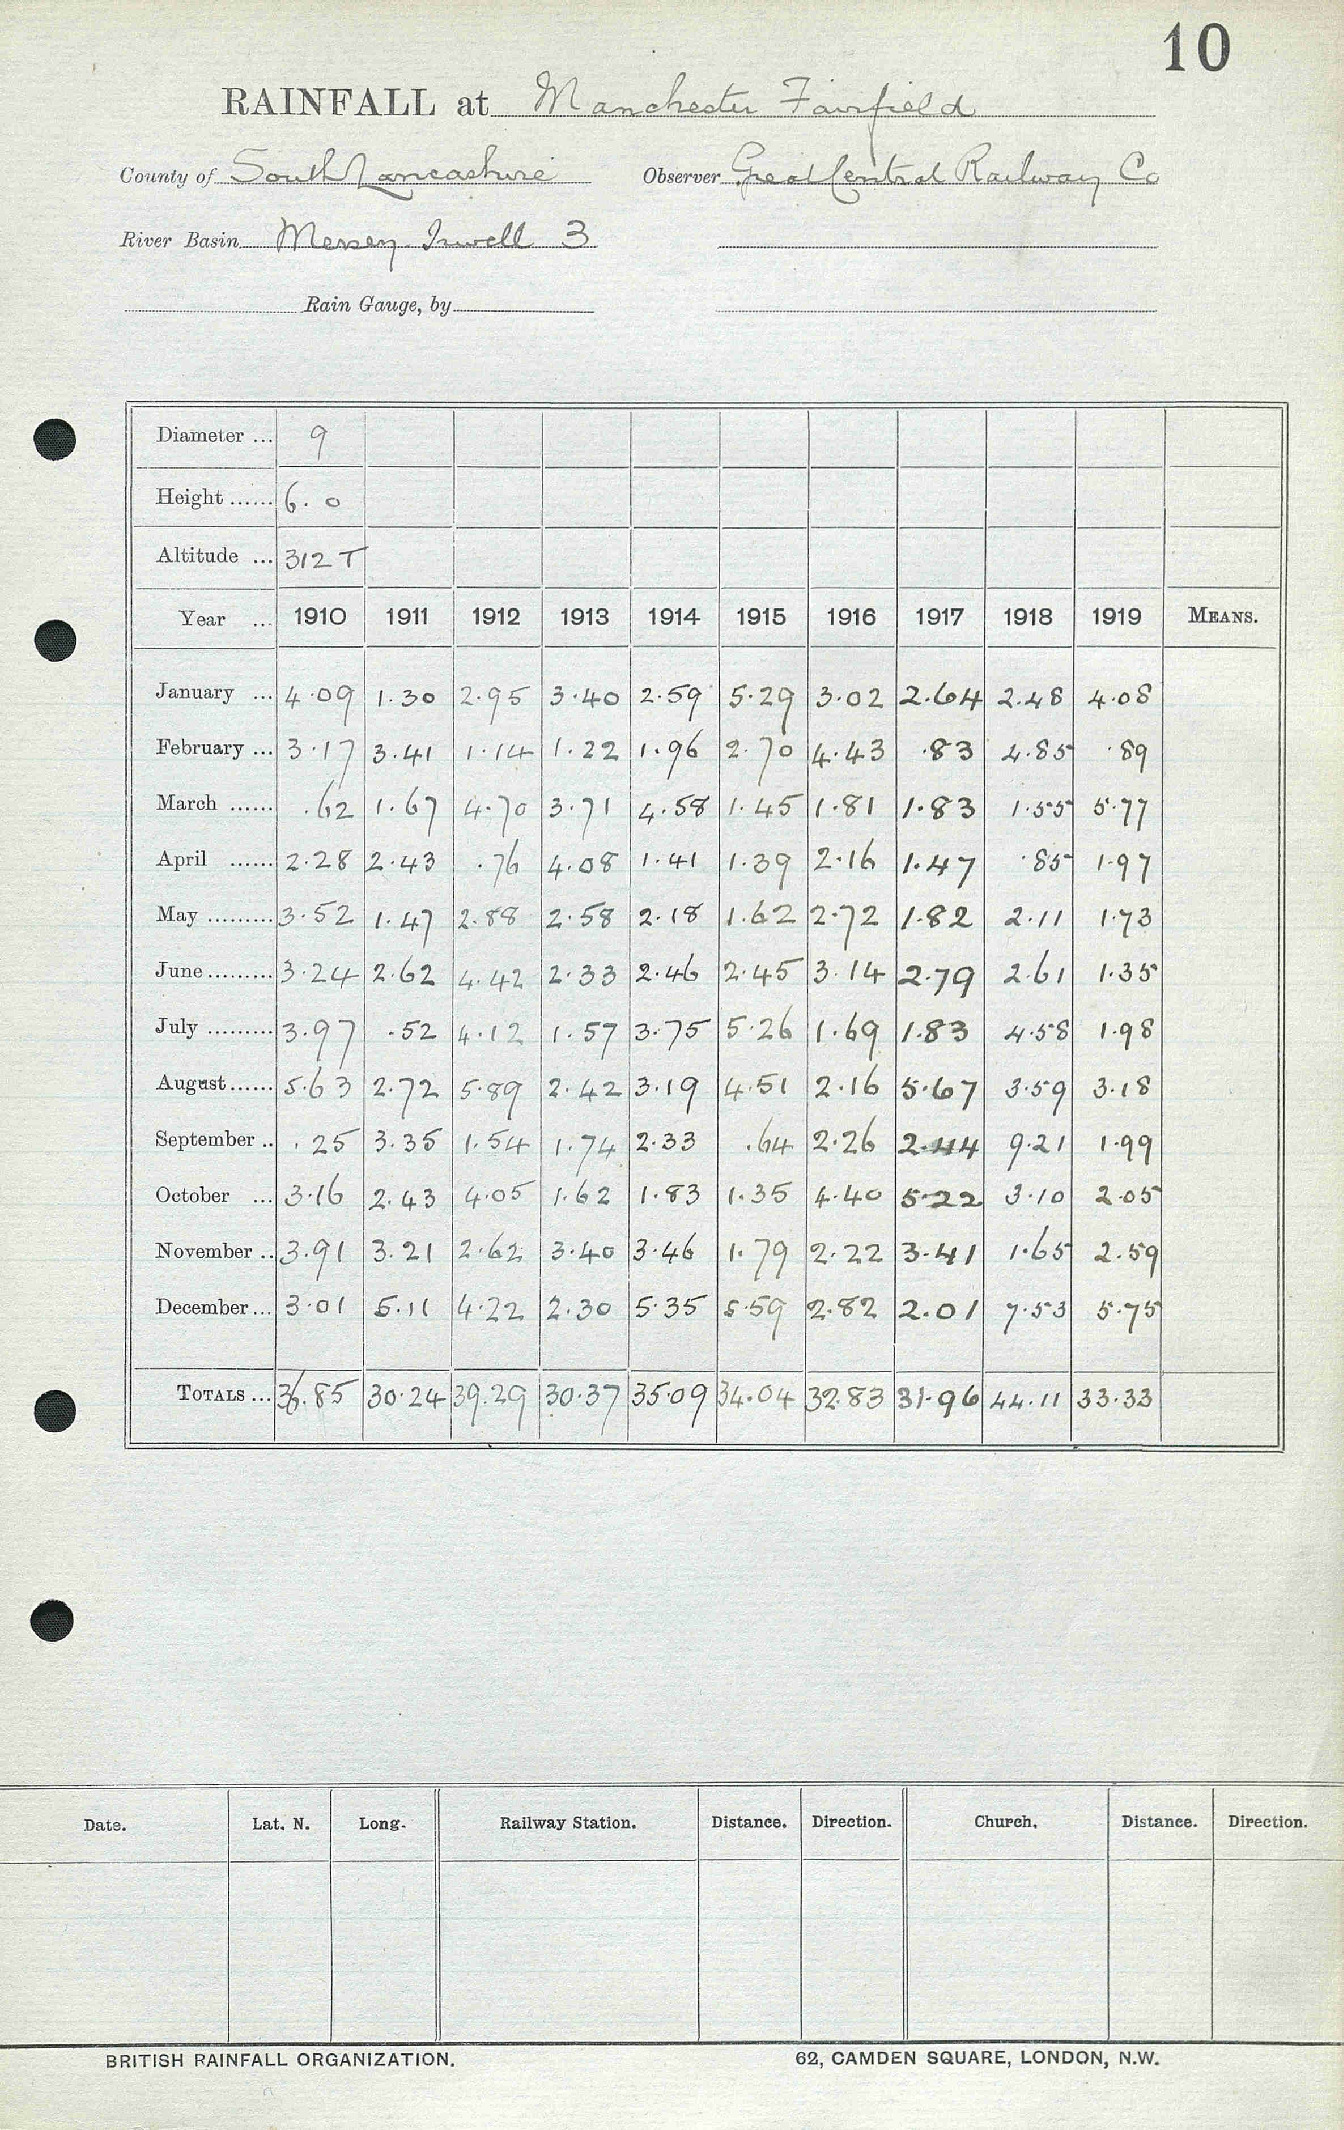 10
RAINFALL at Manchester Fairfield
County of South Lancashire Observer Great Central Railway Co
River Basin Mersey. Irwell 3
Rain Gauge, by
Diameter ... 9
Height ...... 6. 0
Altitude ... 312 T
Year ... 1910 1911 1912 1913 1914 1915 1916 1917 1918 1919 MEANS.
January ... 4.09 1.30 2.95 3.40 2.59 5.29 3.02 2.64 2.48 4.08
February ... 3.17 3.41 1.14 1.22 1.96 2.70 4.43 .83 4.85 .89
March ...... .62 1.67 4.70 3.71 4.58 1.45 1.81 1.83 1.55 5.77
April ...... 2.28 2.43 .76 4.08 1.41 1.39 2.16 1.47 .85 1.97
May ......... 3.52 1.47 2.88 2.58 2.18 1.62 2.72 1.82 2.11 1.73
June ......... 3.24 2.62 4.42 2.33 2.46 2.45 3.14 2.79 2.61 1.35
July ......... 3.97 .52 4.12 1.57 3.75 5.26 1.69 1.83 4.58 1.98
August ...... 5.63 2.72 5.89 2.42 3.19 4.51 2.16 5.67 3.59 3.18
September .. .25 3.35 1.54 1.74 2.33 .64 2.26 2.44 9.21 1.99
October ... 3.16 2.43 4.05 1.62 1.83 1.35 4.40 5.22 3.10 2.05
November .. 3.91 3.21 2.62 3.40 3.46 1.79 2.22 3.41 1.65 2.59
December ... 3.01 5.11 4.22 2.30 5.35 5.59 2.82 2.01 7.53 5.75
TOTALS ... 36.85 30.24 39.29 30.37 35.09 34.04 32.83 31.96 44.11 33.33
Date. Lat. N. Long. Railway Station. Distance. Direction. Church. Distance. Direction.
BRITISH RAINFALL ORGANIZATION. 62, CAMDEN SQUARE, LONDON, N.W.